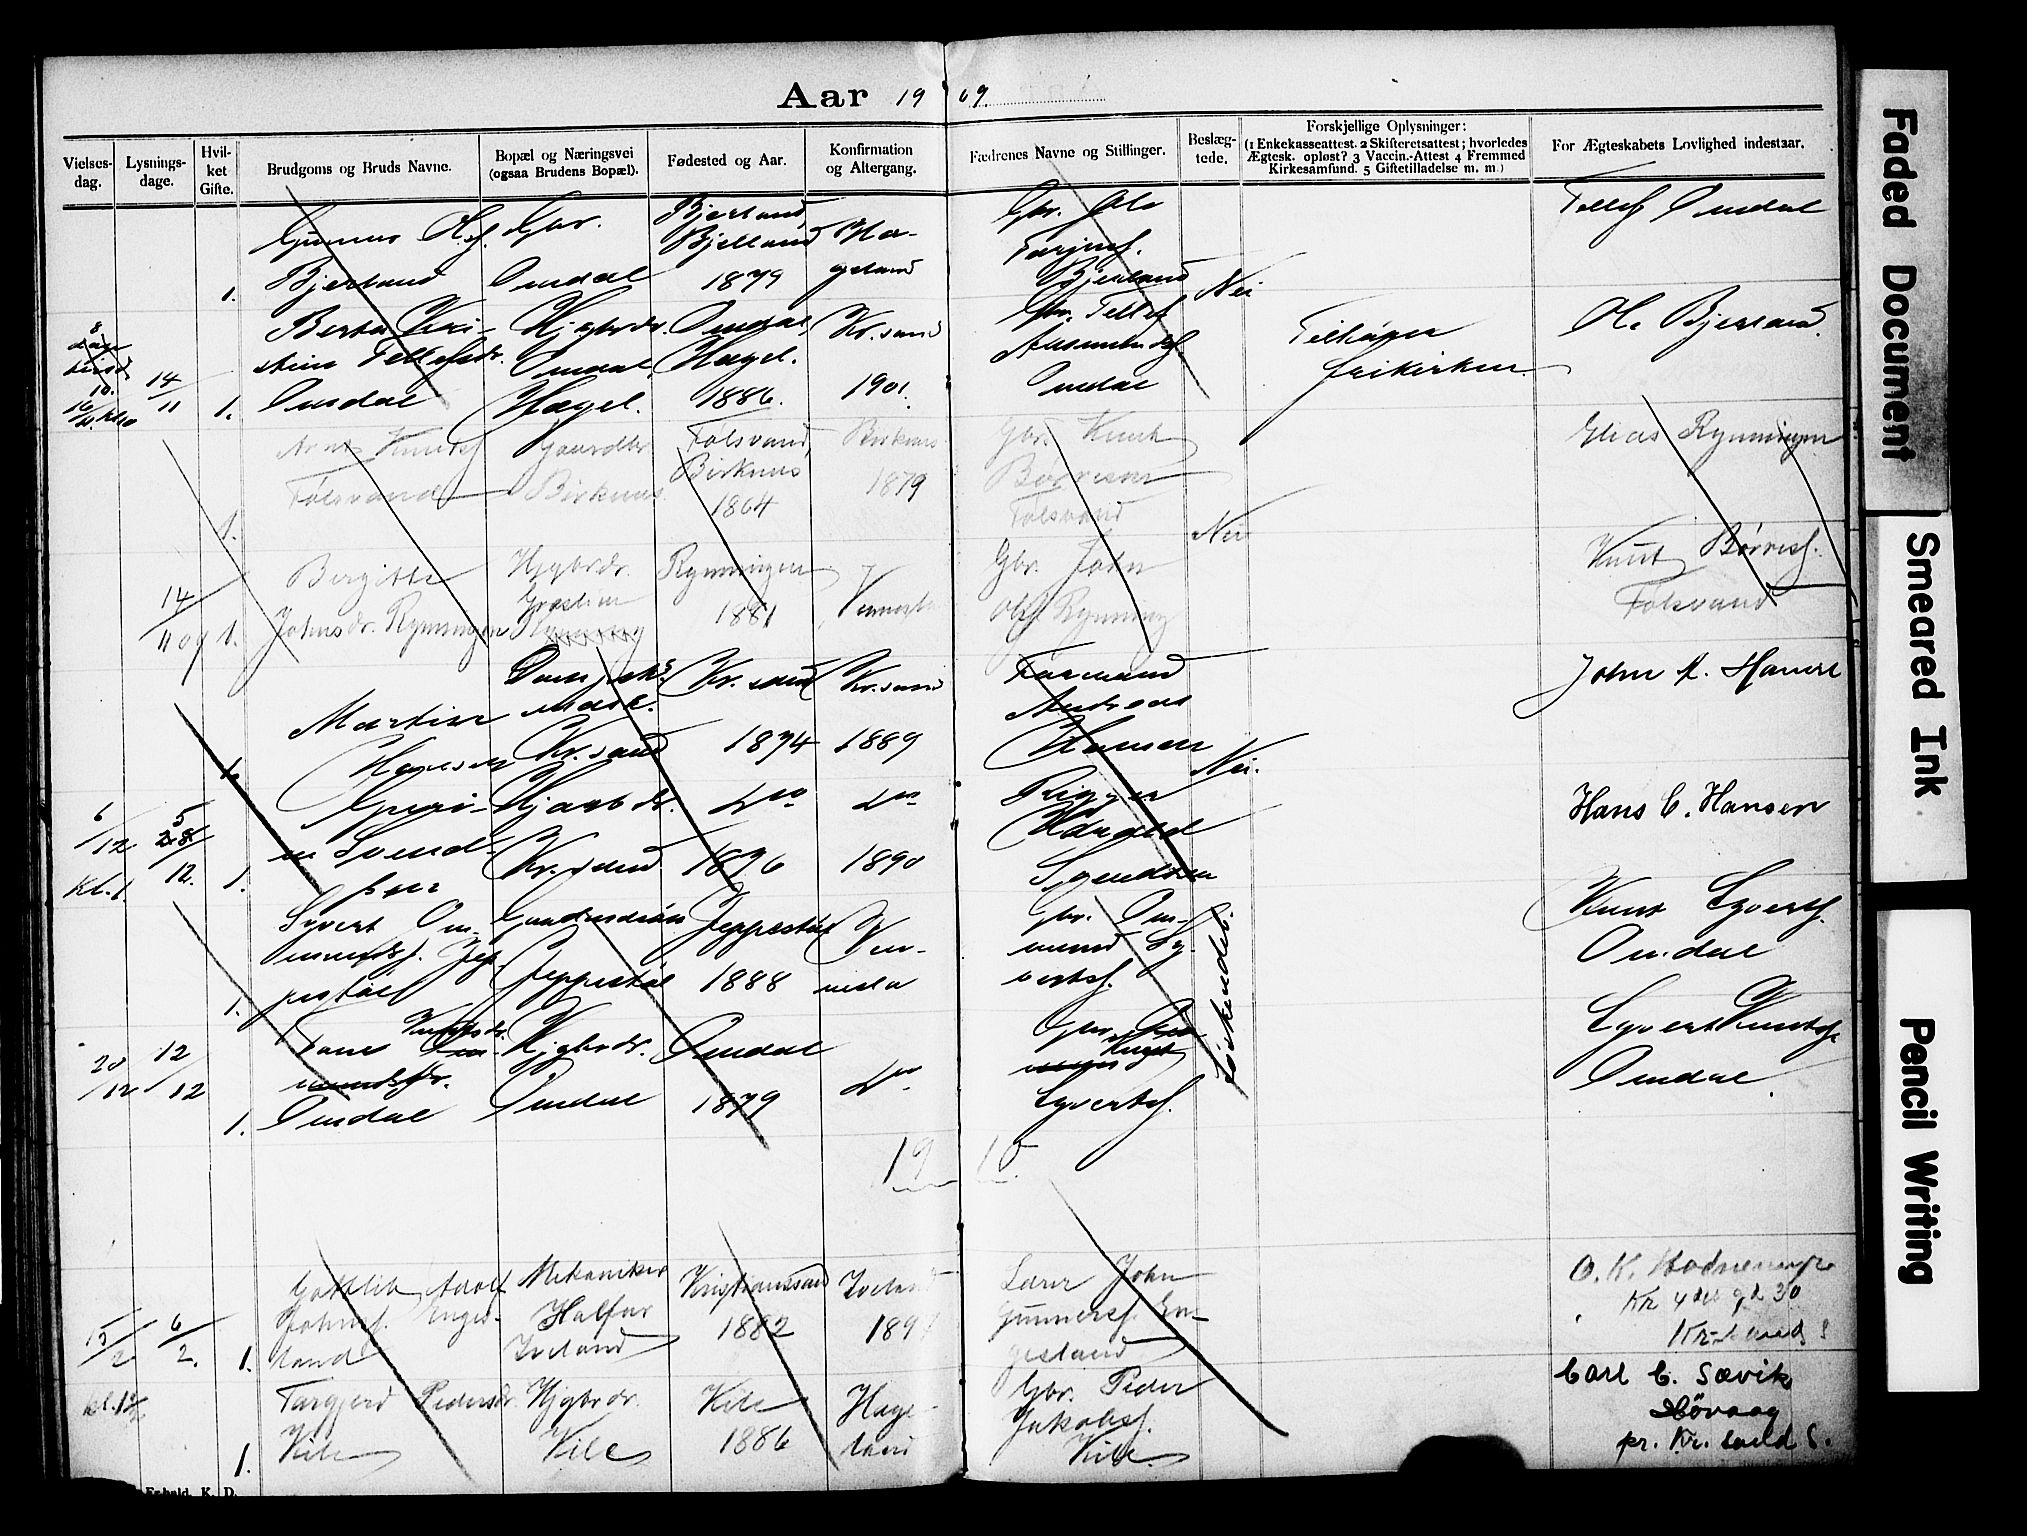 Aar 1909.
Vielses-dag.
Lysnings-dage.
Hvil-ket Gifte.
Brudgoms og Bruds Navne.
Bopæl og Næringsvei
(ogsaa Brudens Bopæl).
Fødested og Aar.
Konfirmation
og Altergang.
Fædrenes Navne og Stillinger.
Beslæg-
tede.
Forskjellige Oplysninger:
(1 Enkekasseattest. 2 Skifteretsattest; hvorledes
Ægtesk. opløst? 3 Vaccin.-Attest 4 Fremmed
Kirkesamfund. 5 Giftetilladelse m. m.)
For Ægteskabets Lovlighed indestaar.
1.
Gunnar O.s.
Bjerland
Gbr.
Omdal
Bjerland,
Bjelland
1879
Hæ-
geland
Gbr. Ole
Tarjeis.
Bjerland
Nei
Tellef Omdal
14/11
1.
Berta Kri-
stine Tellefsdr.
Omdal
Hjgbrdr.
Omdal,
Hægel.
Omdal,
Hægel.
1886.
Kr.sand
1901.
Gbr. Tellef
Aasmundsf.
Omdal
Tilhører
frikirken.
Ole Bjerland.
1.
Arne Knutsf
Følsvand
Gaardbr.
Birkenes.
Følsvand,
Birkenes
1864
Birkenes
1879
Gbr. Knut
Børresen
Følsvand
Nei
Elias Rynningen
14/11 09
1.
Bergitte
Johnsdr. Rynningen
Hjgbrdr.
Rynningen
1881
Vennesla
Gbr. John
Ols. Rynning
Knut Børresf.
Følsvand
1.
Martin
Hansen
Kr.sand
Kr.sand
1874
Kr.sand
1889
Formand
Andreas
Hansen
Nei.
John A. Haneres
6/12
Kl. 1
5/12.
1.
Guri-
ne Svend-
sen
Hjgbrdr.
Kr.sand.
do
1876
do
1890
Rigger
Harald
Svendsen
Hans C. Hansen
1.
Syvert Om-
mundsf. Jep-
pestøl
Gaardmdsøn
Jeppestøl
Jeppestøl
1888
Ven-
nesla
Gbr. Om-
mund Sy-
vertsf.
Søskendeb.
Knut Syvertsf.
Omdal
20/12
12/12
1.
Tone Knutsdr.
Omdal
Hjgbrdr.
Omdal
Omdal
1879
do
Gbr. Knut
Syvertsf.
Syvert Knutsf
Omdal.
1910.
15/2
6/2.
1.
Gottlieb Adolf
Johnsf. Enges-
land
Mekaniker
Iveland
Kristianssand
1882
Iveland
1897
Lærer John
Gunnersf. En-
gesland
O. K.
Kr.sand S
kl. 12
1.
Targjerd Pedersdr.
Kile
Hjgbrdr.
Kile
Kile
1886
Hæge-
land
Gbr. Peder
Jakobsf.
Kile.
Carl C. Sævik
Høvaag
pr. Kr.sand S.
Forhold. K. D.
Faded Document
Smeared Ink
Pencil Writing